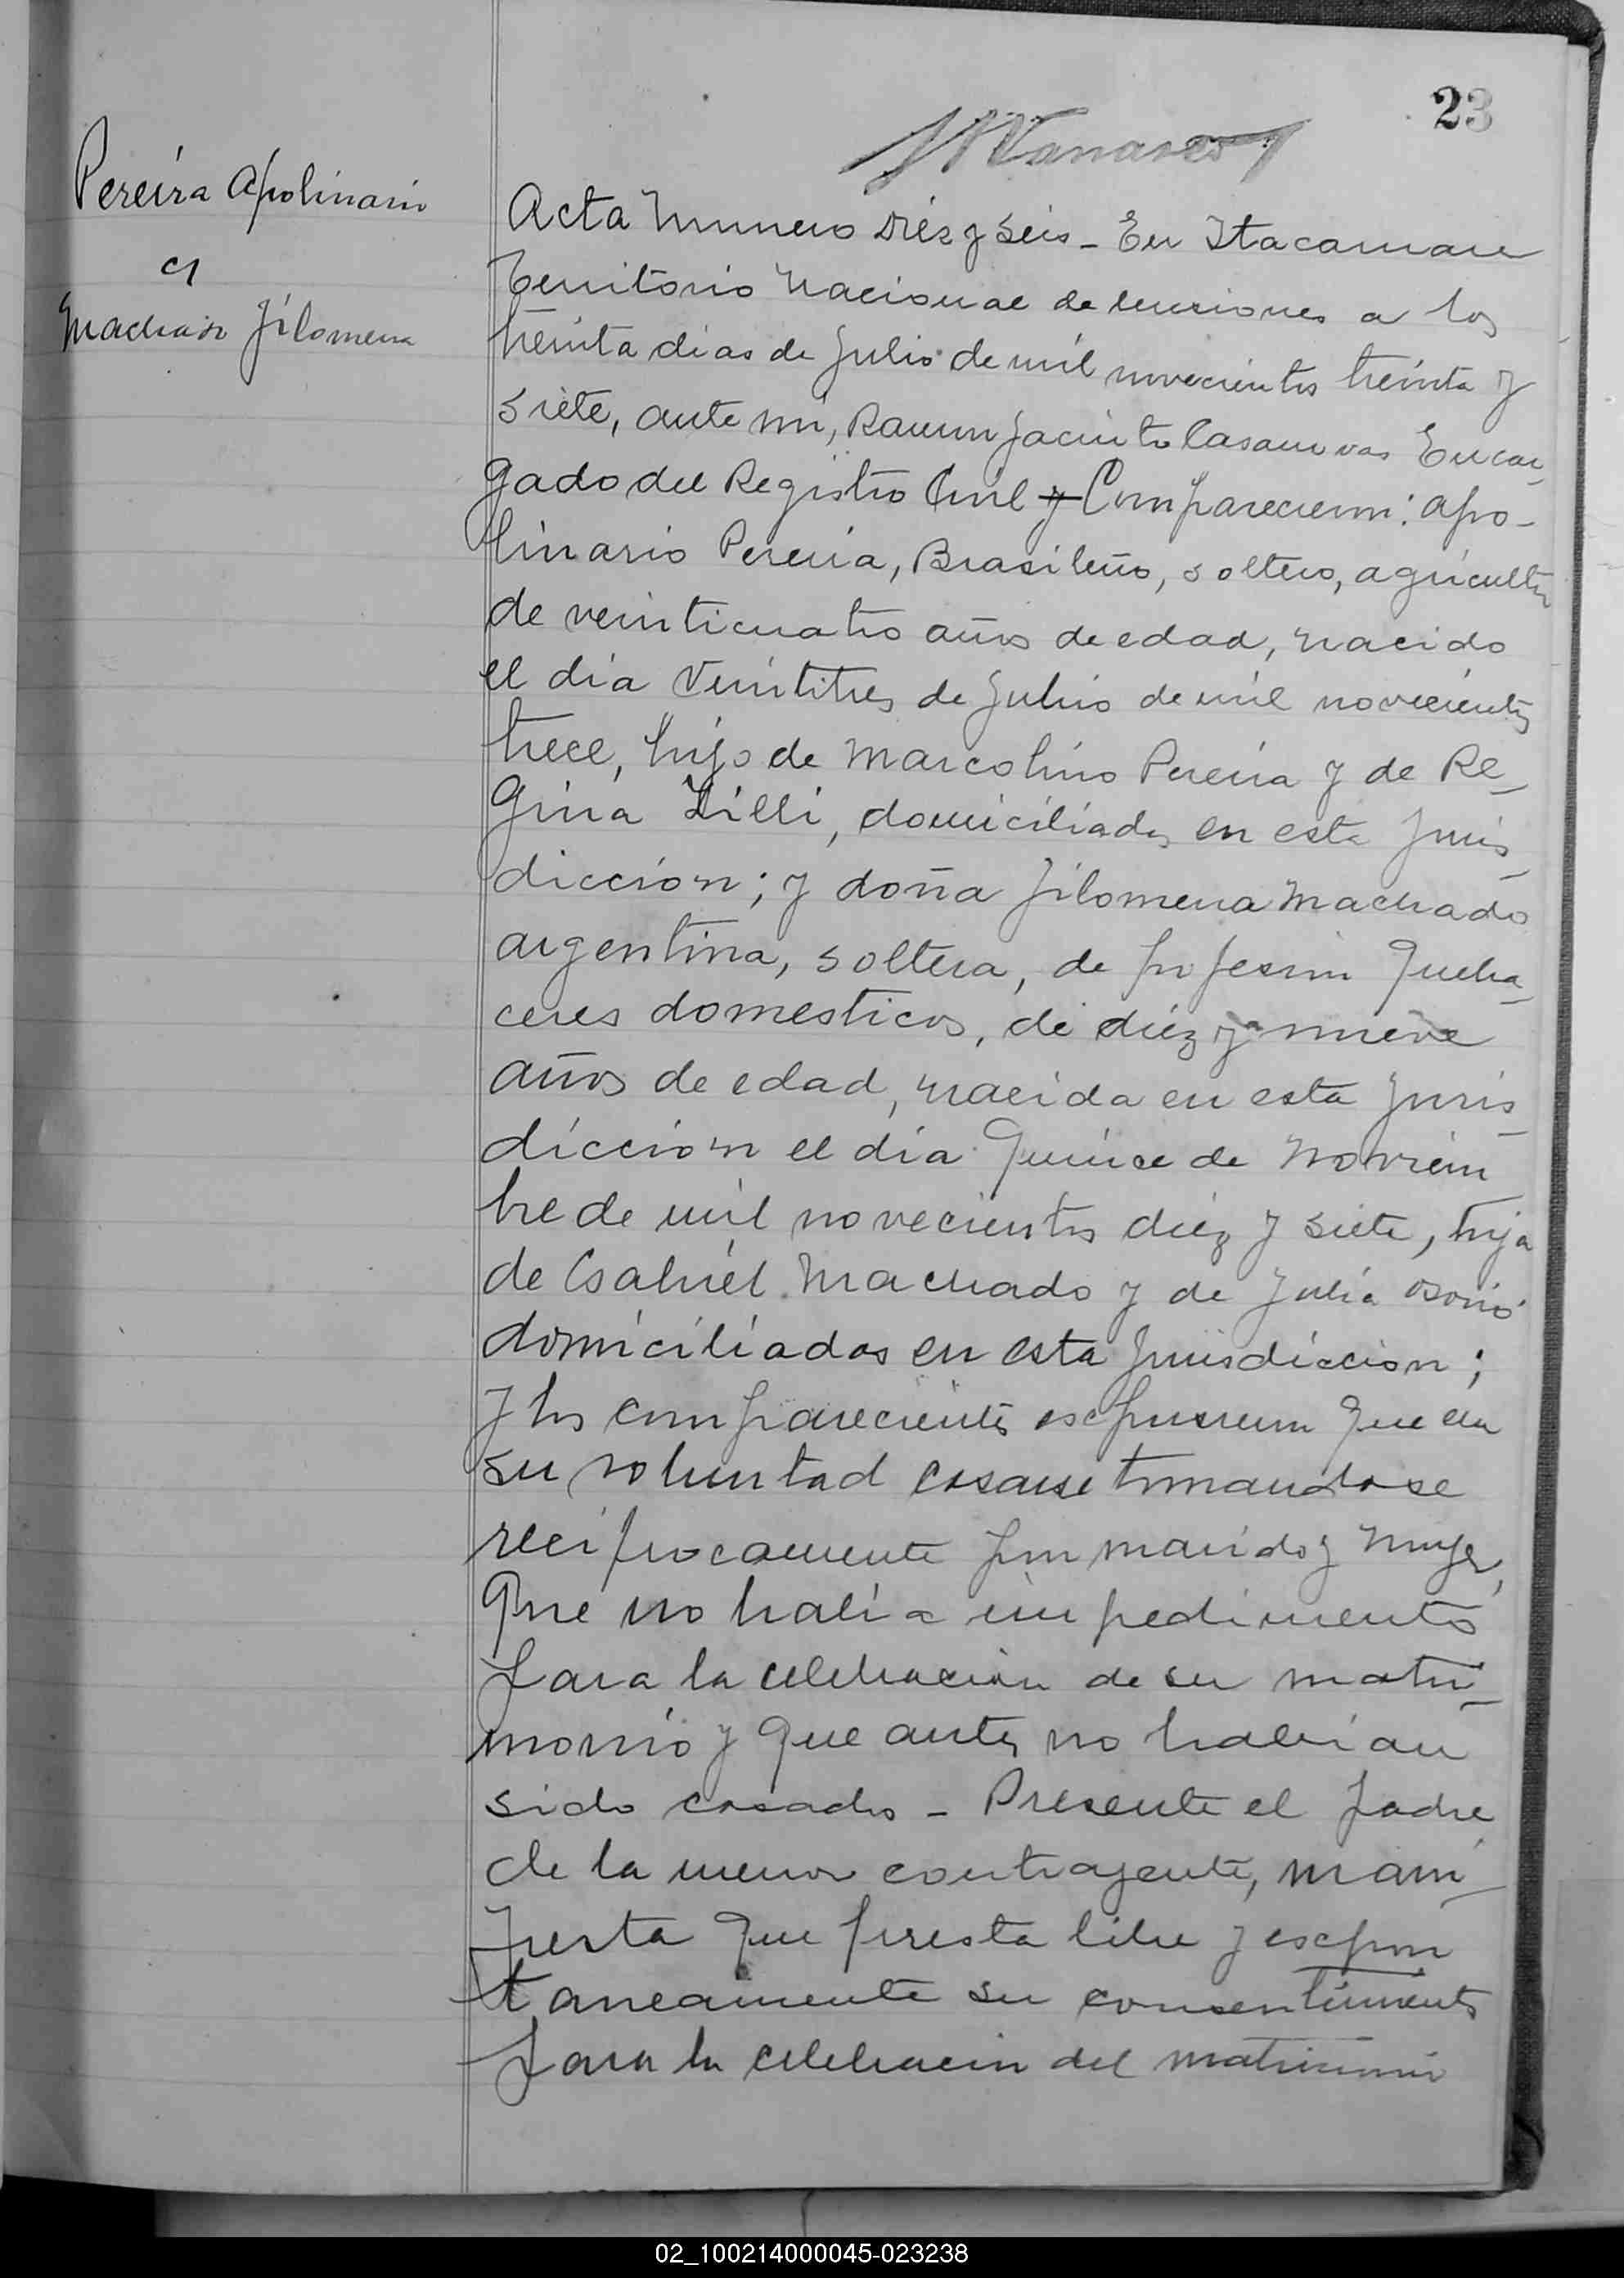 23
Pereira Apolinario
c/
Machado Filomena
Acta Numero Diez y Seis - En Itacaruare
Territorio Nacional de Misiones a los
treinta dias de Julio de mil novecientos treinta y
siete, ante mi, Ramon Jacinto Casanovas Encar-
gado del Registro Civil y Comparecieron: Apo-
linario Pereira, Brasileño, soltero, agricultor
de veinticuatro años de edad, nacido
el dia Veintitres de Julio de mil novecientos
trece, hijo de Marcolino Pereira y de Re-
gina Lilli, domiciliados en esta Juris-
diccion; y doña Filomena Machado
argentina, soltera, de profesion Queha-
ceres domesticos, de diez y nueve
años de edad, nacida en esta Juris-
diccion el dia Quince de Noviem
bre de mil novecientos diez y siete, hija
de Gabriel Machado y de Julia Osorio
domiciliados en esta Jurisdiccion;
y los comparecientes escpusieron que era
su voluntad casarse tomandose
reciprocamente por marido y muger,
Que no habia impedimento
para la celebracion de su matri-
monio y que antes no habian
sido casados - Presente el padre
de la menor contrayente, mani-
fiesta que presta libre y escpon
taneamente su consentimiento
para la celebracion del matrimonio
02_100214000045-023238